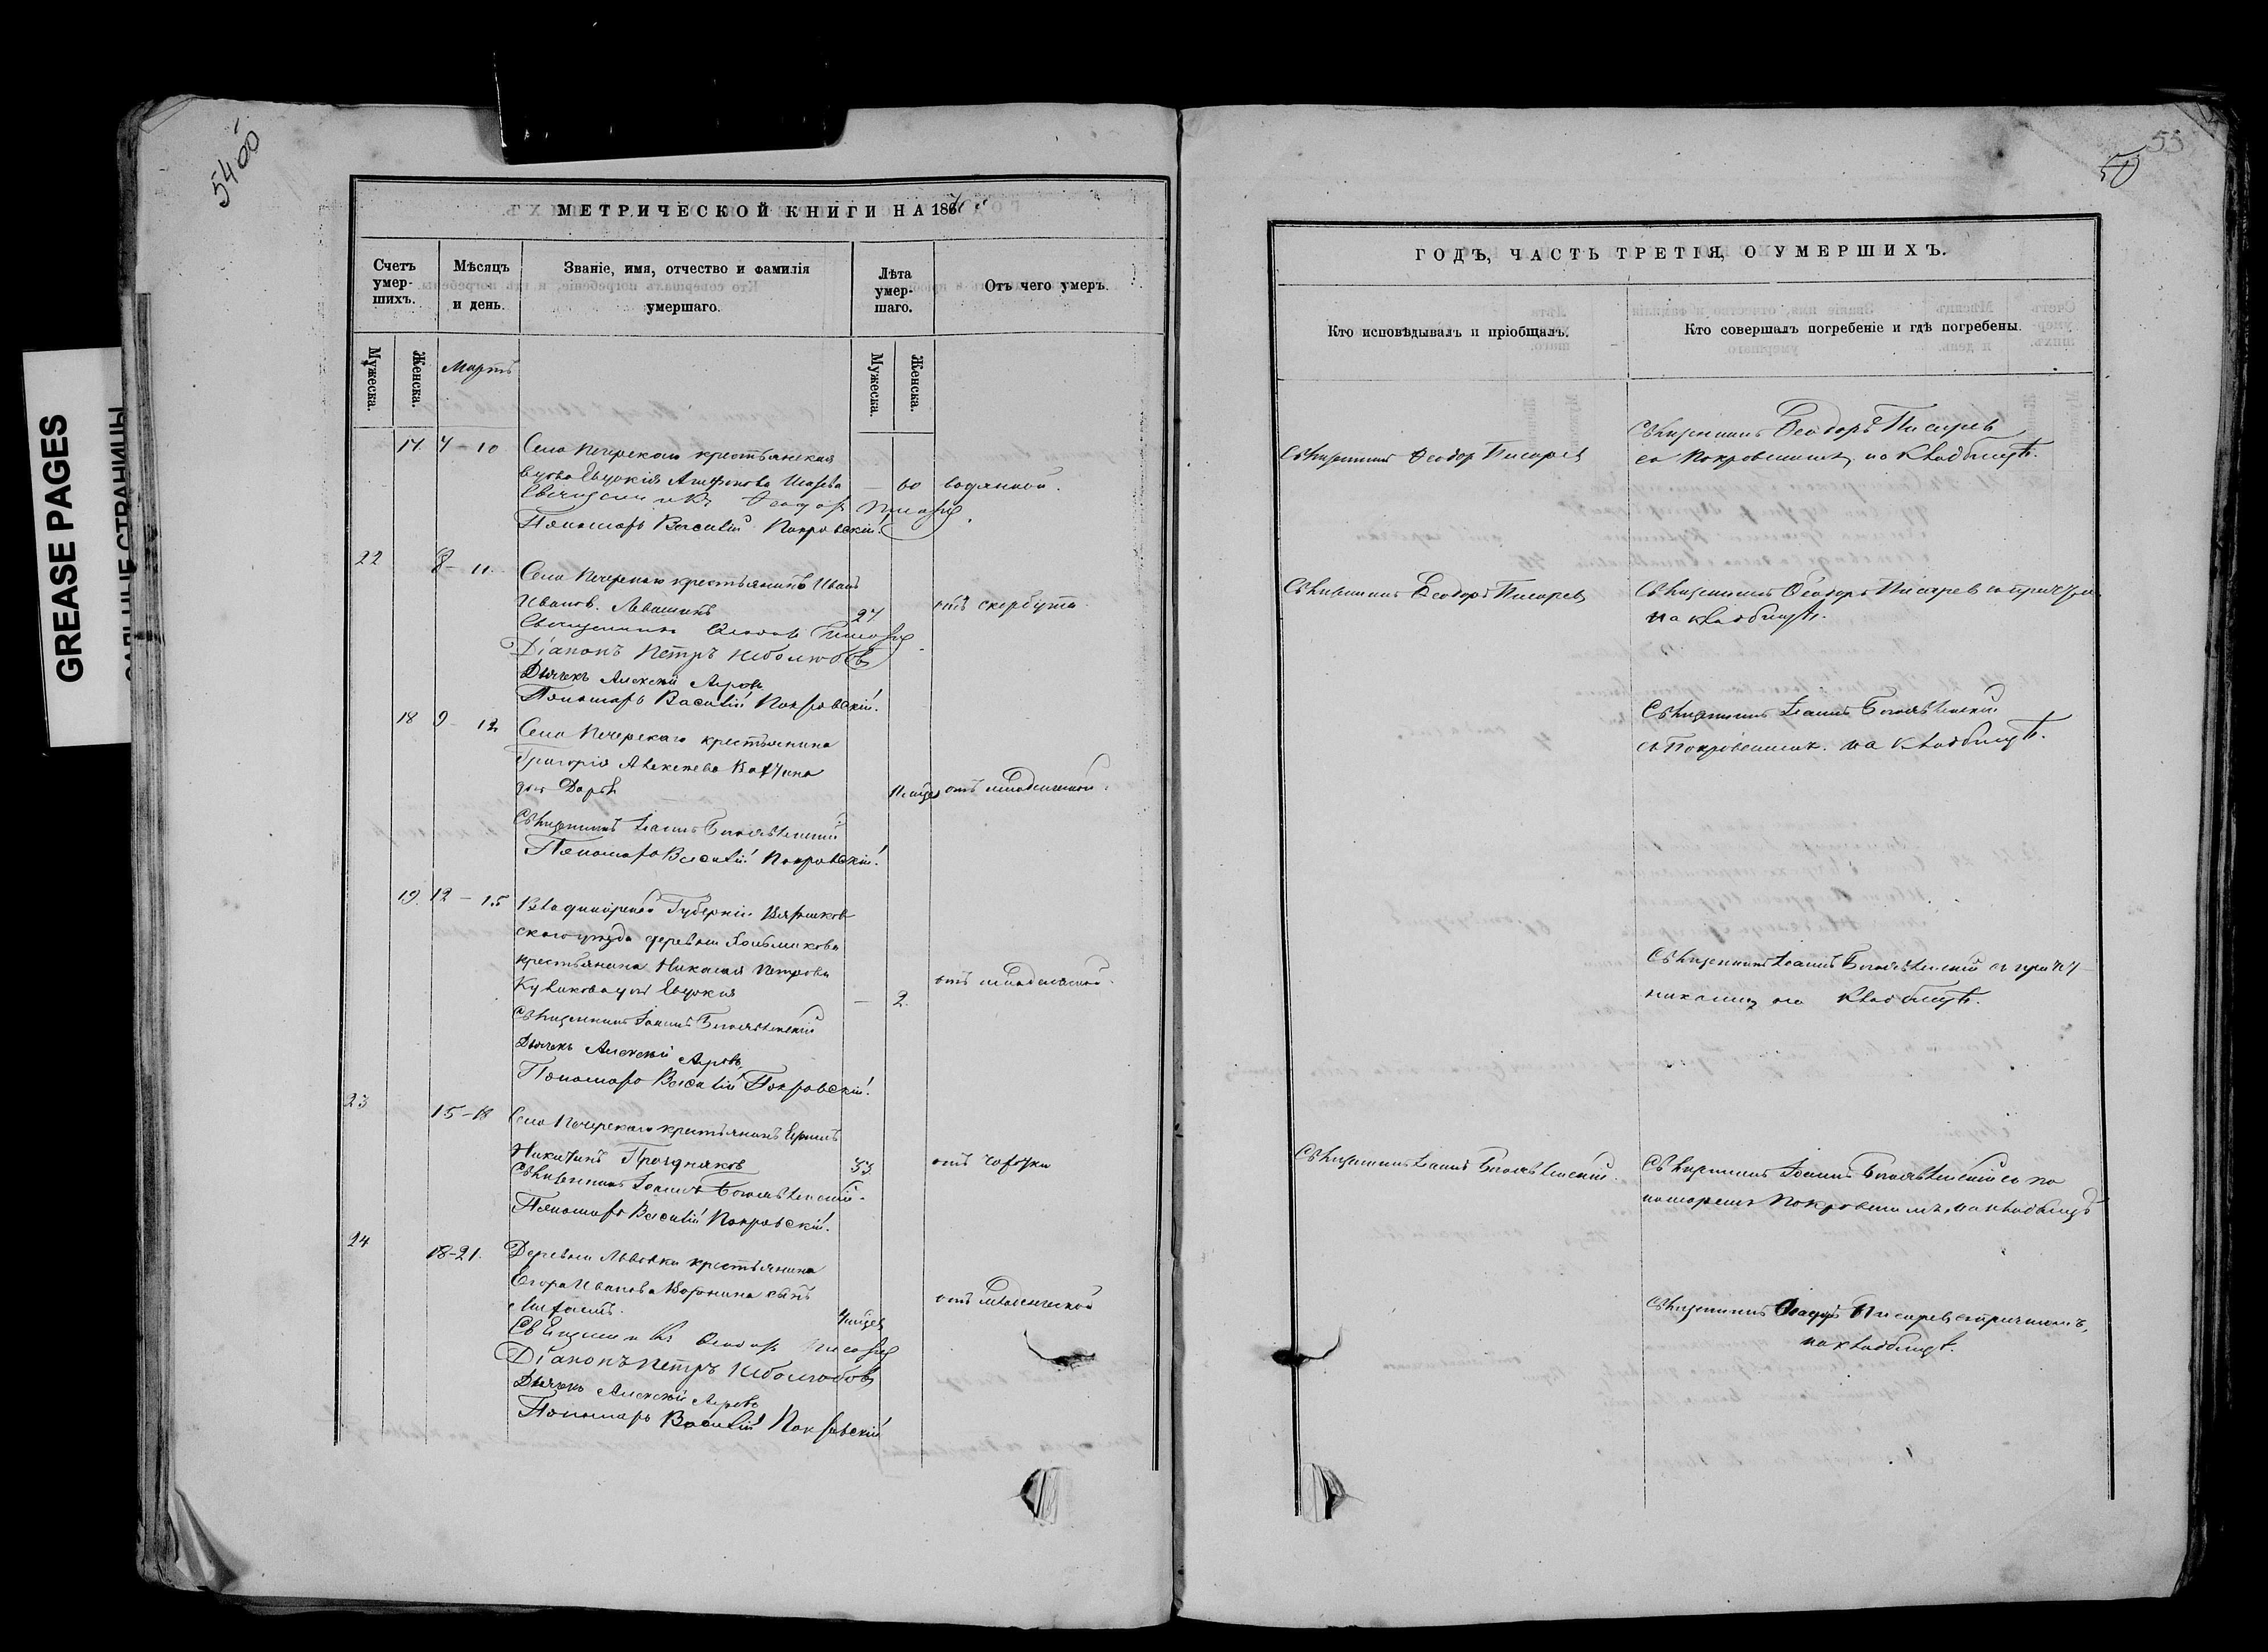 GREASE PAGES
САЛЬНЫЕ СТРАНИЦЫ
МЕТРИЧЕСКОЙ КНИГИ НА 187
Счетъ умер-шихъ.
Мѣсяцъ и день.
Званіе, имя, отчество и фамилія умершаго.
Лѣта умер-шаго.
Отъ чего умеръ.
Мужеска.
Женска.
Мартъ
Мужеска.
Женска.
17. 7 - 10 Села Печерскаго крестьянская
вдова Евдокія — 60 водянкой.
Священникъ Ѳеодоръ Писарев
Пономарь Василій Покровскій.
22 8 - 11. Села Печерскаго крестьянинъ Иванъ
Иванов. Левашинъ 27 отъ скорбута
Священникъ Ѳеодоръ Писарев
Діаконъ Петръ
Дьячекъ Алексѣй Агровъ
Пономарь Василій Покровскій.
18 9 - 12 Села Печерскаго крестьянина
Григорія Алексѣева
дочь Дарья отъ младенческой.
Священникъ Іоаннъ Богоявленскій
Пономарь Василій Покровскій.
19. 12 - 15 Владимірской Губерніи Вязников
скаго уѣзда деревни
крестьянина Николая Петрова
Куликова дочь Евдокія — 2. отъ младенческой.
Священникъ Іоаннъ Богоявленскій
Дьячекъ Алексѣй Агровъ
Пономарь Василій Покровскій.
23 15-18 Села Печерскаго крестьянинъ
Никитинъ 33 отъ чахотки
Священникъ Іоаннъ Богоявленскій.
Пономарь Василій Покровскій.
24 18-21. Деревни Львовки крестьянина
Егора Иванова Воронина сынъ
отъ младенческой
Священникъ Ѳеодоръ Писарев
Діаконъ Петръ
Дьячекъ Алексѣй Агровъ
Пономарь Василій Покровскій
55
50
ГОДЪ, ЧАСТЬ ТРЕТІЯ, О УМЕРШИХЪ.
Кто исповѣдывалъ и пріобщалъ.
Кто совершалъ погребеніе и гдѣ погребены.
Священникъ Ѳеодор Писарев
Священникъ Ѳеодоръ Писарев
съ Покровскимъ на кладбищѣ.
Священникъ Ѳеодоръ Писарев
Священникъ Ѳеодоръ Писарев съ причтом
на кладбищѣ.
Священникъ Іоаннъ Богоявленскій
съ Покровскимъ. на кладбищѣ.
Священникъ Іоаннъ Богоявленскій съ причет
никами на кладбищѣ.
Священникъ Іоаннъ Богоявленскій.
Священникъ Іоаннъ Богоявленскій съ по
номаремъ Покровскимъ, на кладбищѣ
Священникъ Ѳеодоръ Писарев съ причтомъ,
на кладбищѣ.